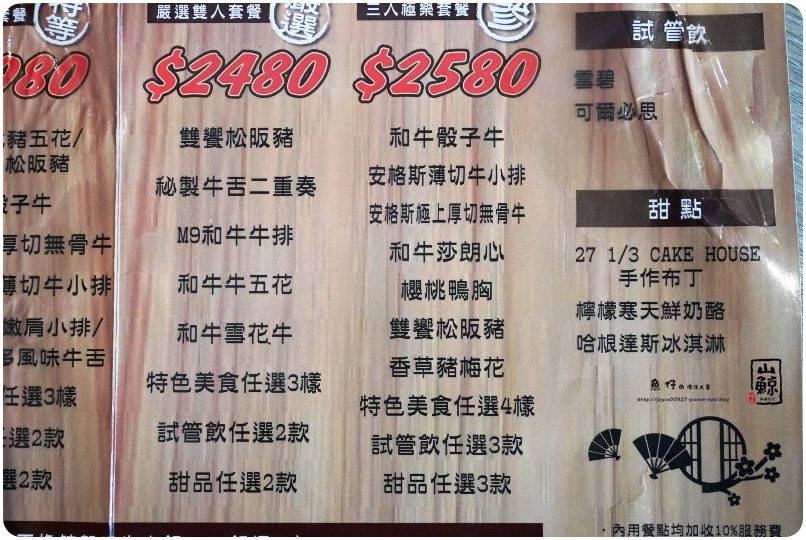 套餐
特等
980
豬五花/
松阪豬
骰子牛
厚切無骨牛
薄切牛小排
嫩肩小排/
多風味牛舌
任選3樣
任選2款
選2款
嚴選雙人套餐
嚴選
$2480
雙饗松阪豬
秘製牛舌二重奏
M9和牛牛排
和牛牛五花
和牛雪花牛
特色美食任選3樣
試管飲任選2款
甜品任選2款
三人極樂套餐
$2580
和牛骰子牛
安格斯薄切牛小排
安格斯極上厚切無骨牛
和牛莎朗心
櫻桃鴨胸
雙饗松阪豬
香草豬梅花
特色美食任選4樣
試管飲任選3款
甜品任選3款
試管飲
雪碧
可爾必思
甜點
27 1/3 CAKE HOUSE
手作布丁
檸檬寒天鮮奶酪
哈根達斯冰淇淋
魚仔
山鯨
・內用餐點均加收10%服務費